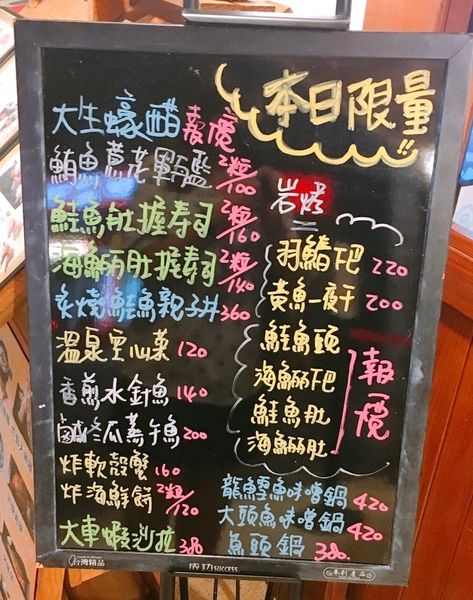 本日限量!!
大生蠔醋 報價
鮪魚蔥花軍艦 2粒/100
鮭魚肚握壽司 2粒/160
海鱺肚握壽司 2粒/140
炙燒鮭魚親子丼 360
溫泉空心菜 120
香煎水針魚 140
鹹冬瓜蒸午魚 200
炸軟殼蟹 160
炸海鮮餅 2粒/120
大車蝦沙拉 380
岩烤
羽鰆下巴 220
黄魚一夜干 200
鮭魚頭
海鱺下巴
鮭魚肚
海鱺肚
報價
龍鱈魚味噌鍋 420
大頭魚味噌鍋 420
魚頭鍋 380.
台灣精品
成功 SUCCESS
專利產品